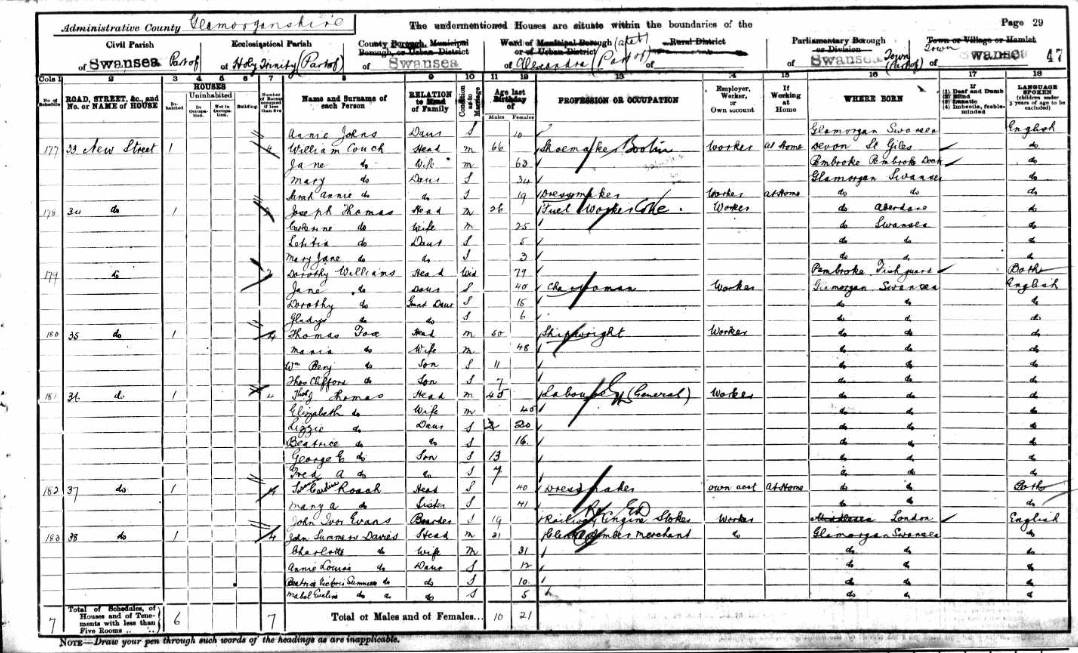 Administrative County Glamorganshire The undermentioned Houses are situate within the boundaries of the Page 29
Civil Parish Ecclesiastical Parish County Borough, Municipal Borough, or Urban District Ward of Municipal Borough or of Urban District Rural District Parliamentary Borough or Division Town or Village or Hamlet
of Swansea Part of of Holy Trinity (Part of) of Swansea of Alexandra (Part of) of of Swansea Town (Part of) of Swansea 47
Cols 1 2 3 4 5 6 7 8 9 10 11 12 13 14 15 16 17 18
No. of Schedule ROAD, STREET, &c., and No. or NAME of HOUSE HOUSES Inhabited Uninhabited In Occupation Not in Occupation Building Number of Rooms occupied if less than five Name and Surname of each Person RELATION to Head of Family Condition as to Marriage Age last Birthday of Males Females PROFESSION OR OCCUPATION Employer, Worker, or Own account If Working at Home WHERE BORN If (1) Deaf and Dumb (2) Blind (3) Lunatic (4) Imbecile, feeble-minded LANGUAGE SPOKEN (children under 3 years of age to be excluded)
Annie Johns Daur S 10 Glamorgan Swansea English
177 33 New Street 1 4 William Couch Head M 66 Shoemaker Worker At Home Devon St Giles do
Jane do Wife M 63 Pembroke Pembroke Dock do
Mary do Daur S 34 Glamorgan Swansea do
Sarah Annie do do S 19 Dressmaker Worker At Home do do do
178 34 do 1 Joseph Thomas Head M 26 Fuel Worker Coke Worker do Aberdare do
Catherine do Wife M 25 do Swansea do
Letitia do Daur S 5 do do do
Mary Jane do do S 3 do do do
179 do 2 Dorothy Williams Head Wid 77 Pembroke Fishguard Both
Jane do Daur S 40 Charwoman Worker Glamorgan Swansea English
Dorothy do Grand Daur S 15 do do do
Gladys do do S 6 do do do
180 35 do 1 4 Thomas Fox Head M 50 Shipwright Worker do do do
Maria do Wife M 48 do do do
Wm do Son S 11 do do do
Thos Clifford do Son S 7 do do do
181 36 do 1 4 Thos J Thomas Head M 45 Labourer (General) Worker do do do
Elizabeth do Wife M 45 do do do
Lizzie do Daur S 20 do do do
Beatrice do do S 16 do do do
George E do Son S 13 do do do
Fred A do do S 7 do do do
182 37 do 1 4 Caroline Roach Head S 40 Dressmaker Own acct At Home do do Both
Mary A do Sister S 41 do do do
John Ivor Evans Boarder S 19 Railway Engine Stoker Worker London English
183 38 do 1 4 John Summers Davies Head M 31 Clerk Timber Merchant do Glamorgan Swansea do
Charlotte do Wife M 31 do do do
Annie Louisa do Daur S 12 do do do
Beatrice Victoria do do S 10 do do do
Mabel Eveline do do S 5 do do do
7 Total of Schedules, of Houses and of Tenements with less than Five Rooms 6 7 Total of Males and Females... 10 21
NOTE—Draw your pen through such words of the headings as are inapplicable.